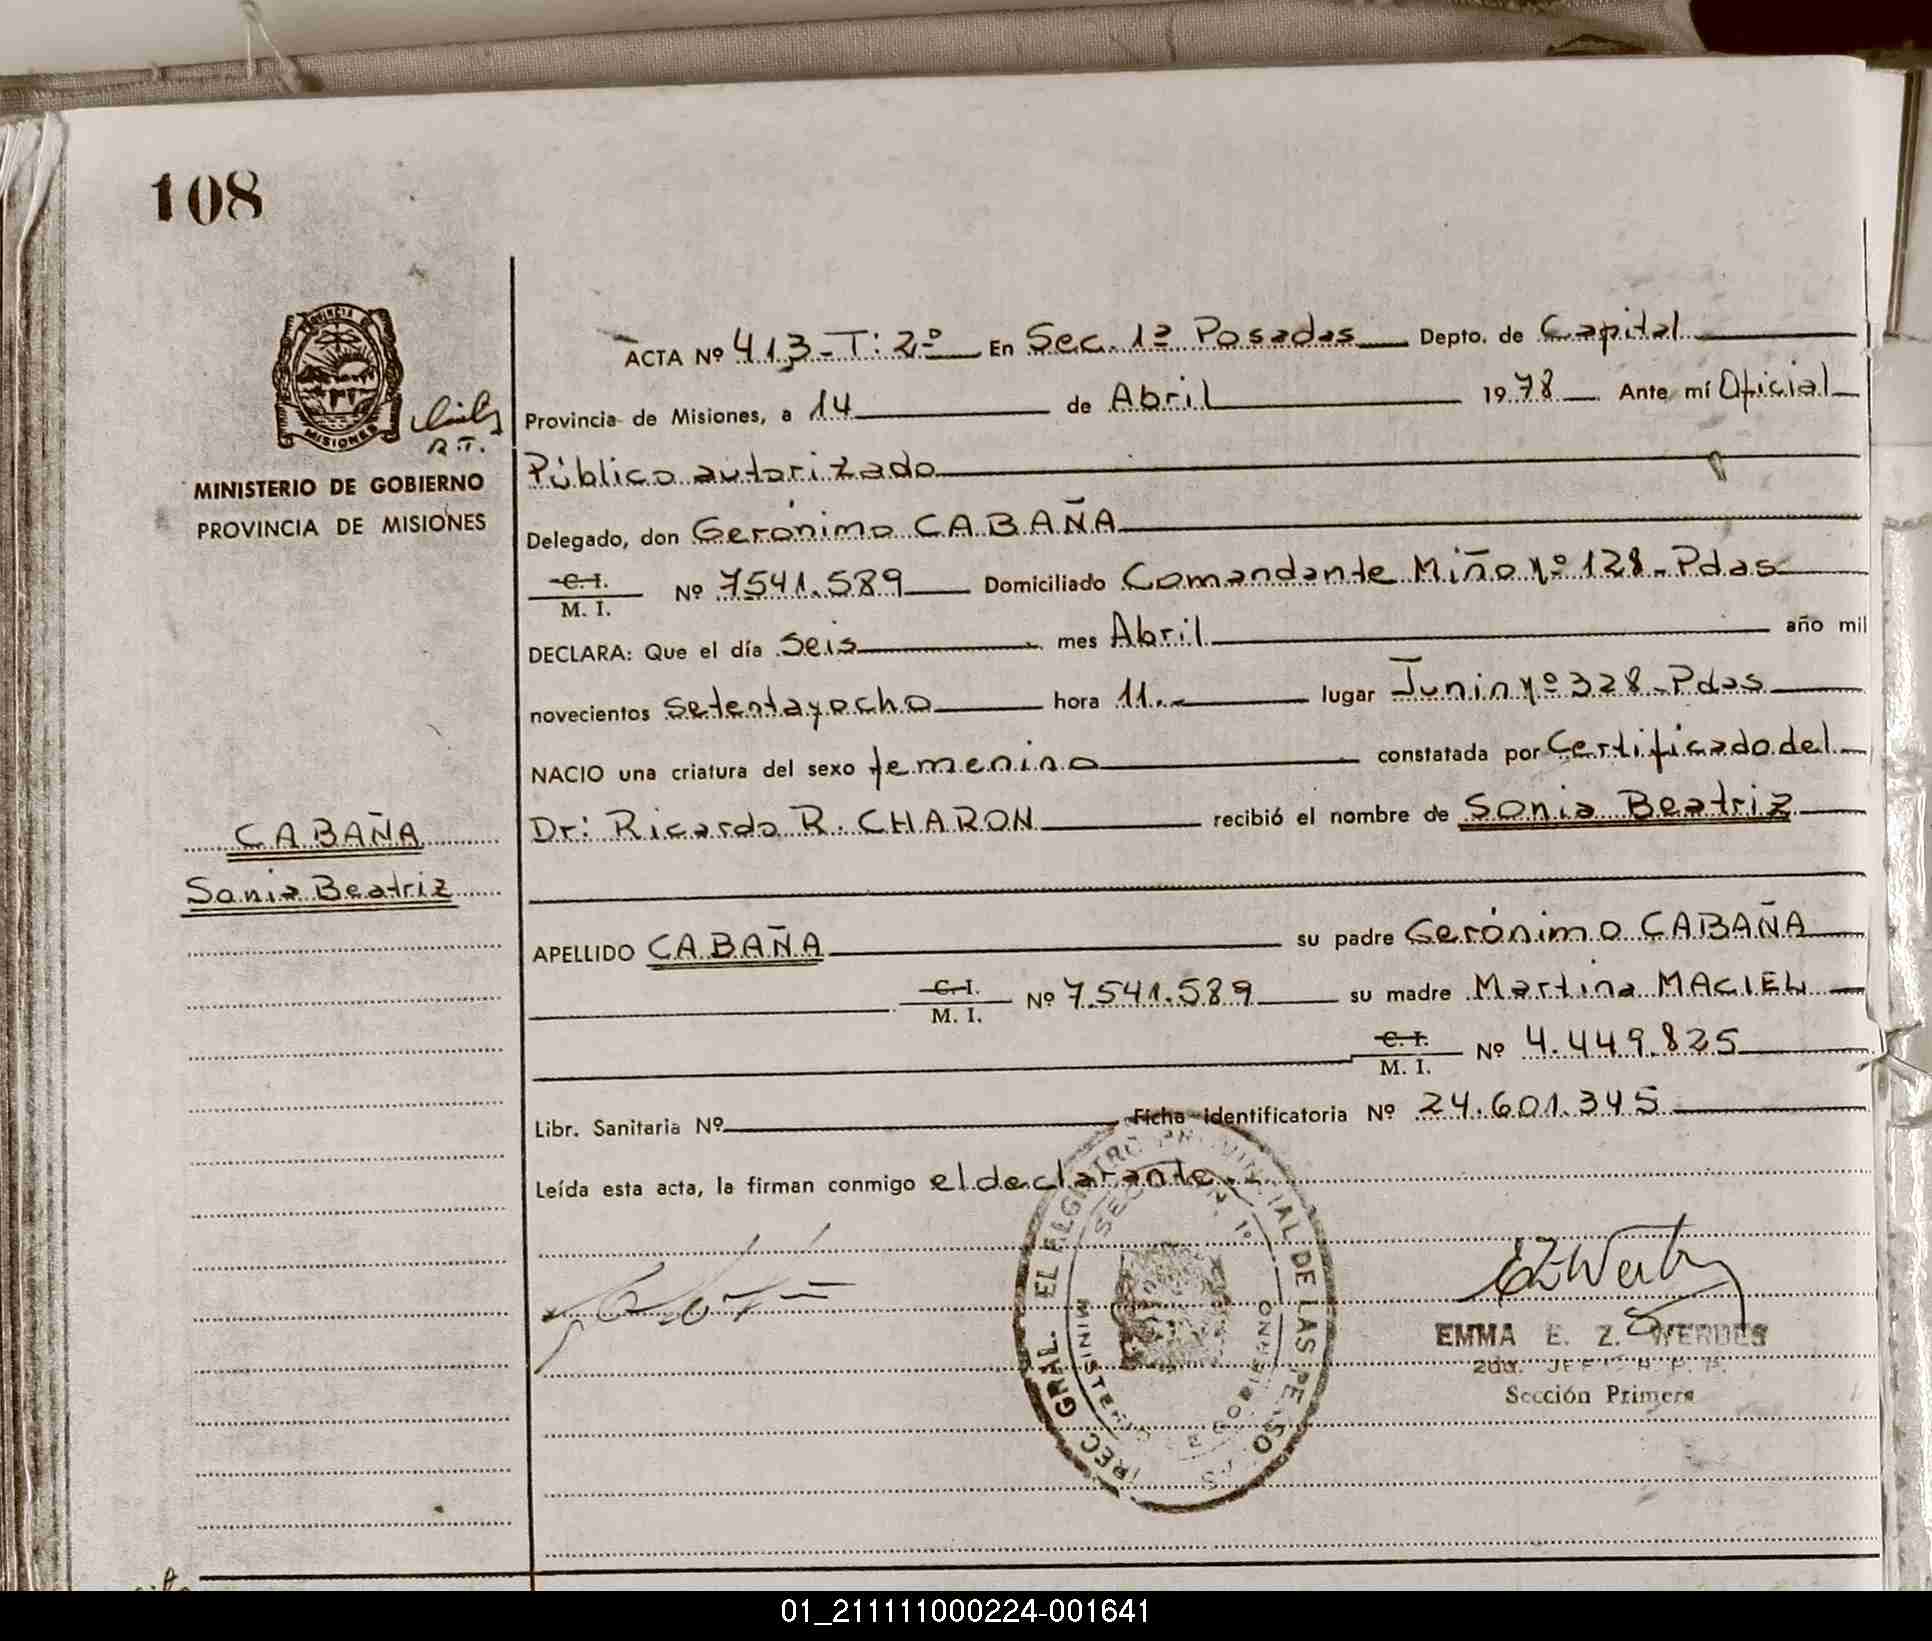 108
PROVINCIA
MISIONES
R.T.
MINISTERIO DE GOBIERNO
PROVINCIA DE MISIONES
CABAÑA
Sonia Beatriz
ACTA Nº 413-T: 2º En Sec. 1ª Posadas Depto. de Capital
Provincia de Misiones, a 14 de Abril 1978 Ante mí Oficial
Público autorizado
Delegado, don Gerónimo CABAÑA
C.I.
M. I. Nº 7541.589 Domiciliado Comandante Miño Nº 128-Pdas
DECLARA: Que el día seis mes Abril año mil
novecientos setentayocho hora 11.- lugar Junin Nº 328-Pdas
NACIO una criatura del sexo femenino constatada por Certificado del
Dr: Ricardo R. CHARON recibió el nombre de Sonia Beatriz
APELLIDO CABAÑA su padre Gerónimo CABAÑA
C.I.
M. I. Nº 7.541.589 su madre Martina MACIEL
C. I.
M. I. Nº 4.449.825
Libr. Sanitaria Nº Ficha identificatoria Nº 24.601.345
Leída esta acta, la firman conmigo el declarante.-
EMMA E. Z. WERDES
2da. JEFE
Sección Primera
01_211111000224-001641